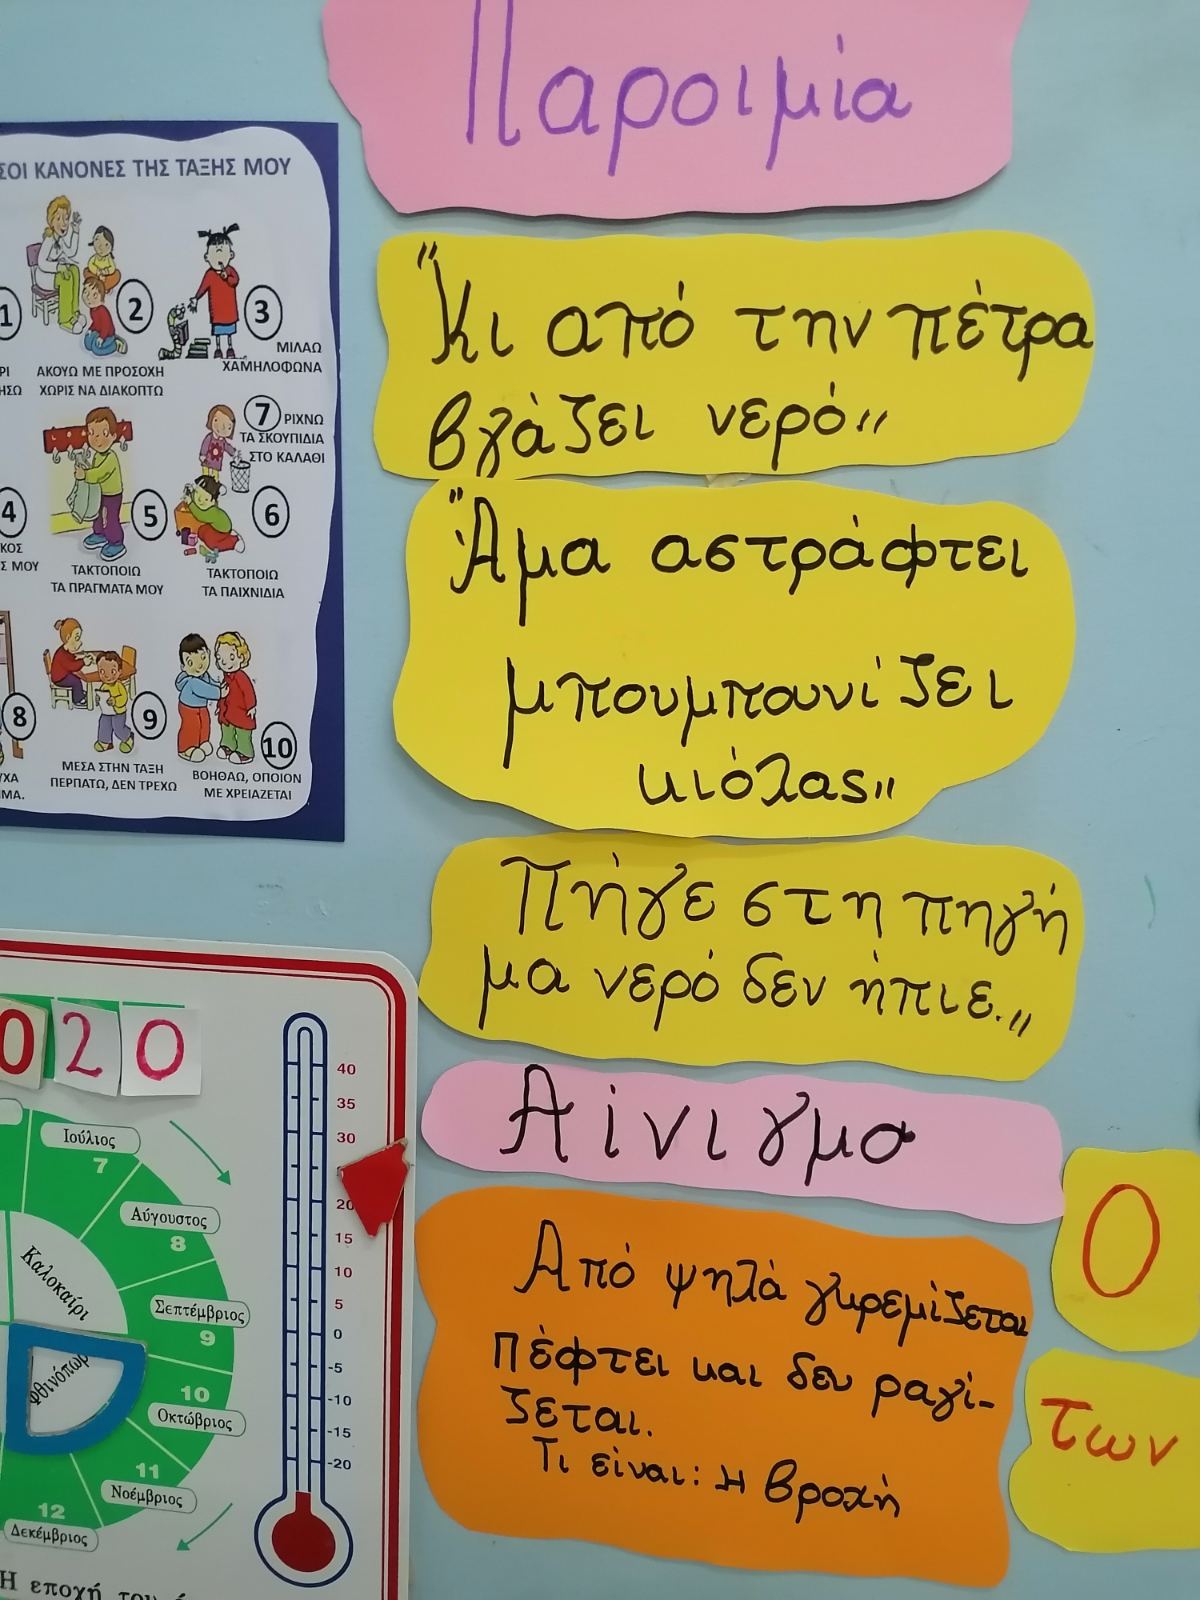 Παροιμία
"Κι από την πέτρα
βγάζει νερό"
"Άμα αστράφτει
μπουμπουνίζει
κιόλας"
Πήγε στη πηγή
μα νερό δεν ήπιε."
Αίνιγμα
Από ψηλά γκρεμίζεται
Πέφτει και δεν ραγί-
ζεται.
Τι είναι: Η βροχή
Ο
των
ΣΟΙ ΚΑΝΟΝΕΣ ΤΗΣ ΤΑΞΗΣ ΜΟΥ
1
2
ΑΚΟΥΩ ΜΕ ΠΡΟΣΟΧΗ
ΧΩΡΙΣ ΝΑ ΔΙΑΚΟΠΤΩ
3
ΜΙΛΑΩ
ΧΑΜΗΛΟΦΩΝΑ
4
ΚΟΣ
Σ ΜΟΥ
5
ΤΑΚΤΟΠΟΙΩ
ΤΑ ΠΡΑΓΜΑΤΑ ΜΟΥ
7 ΡΙΧΝΩ
ΤΑ ΣΚΟΥΠΙΔΙΑ
ΣΤΟ ΚΑΛΑΘΙ
6
ΤΑΚΤΟΠΟΙΩ
ΤΑ ΠΑΙΧΝΙΔΙΑ
8
9
ΜΕΣΑ ΣΤΗΝ ΤΑΞΗ
ΠΕΡΠΑΤΩ, ΔΕΝ ΤΡΕΧΩ
10
ΒΟΗΘΑΩ, ΟΠΟΙΟΝ
ΜΕ ΧΡΕΙΑΖΕΤΑΙ
020
Ιούλιος
7
Αύγουστος
8
Σεπτέμβριος
9
10
Οκτώβριος
11
Νοέμβριος
12
Δεκέμβριος
Καλοκαίρι
Φθινόπωρ
40
35
30
20
15
10
5
0
-5
-10
-15
-20
Η εποχή του